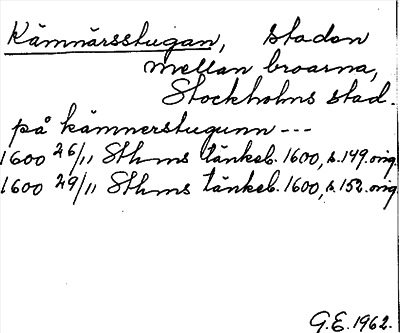 Kämnärsstugan, staden
mellan broarna,
Stockholms stad.
på kämnerstugunn ---
1600 26/11 Sthms tänkeb. 1600, s. 149. orig
1600 29/11 Sthms tänkeb. 1600, s. 152. orig
G.E. 1962.